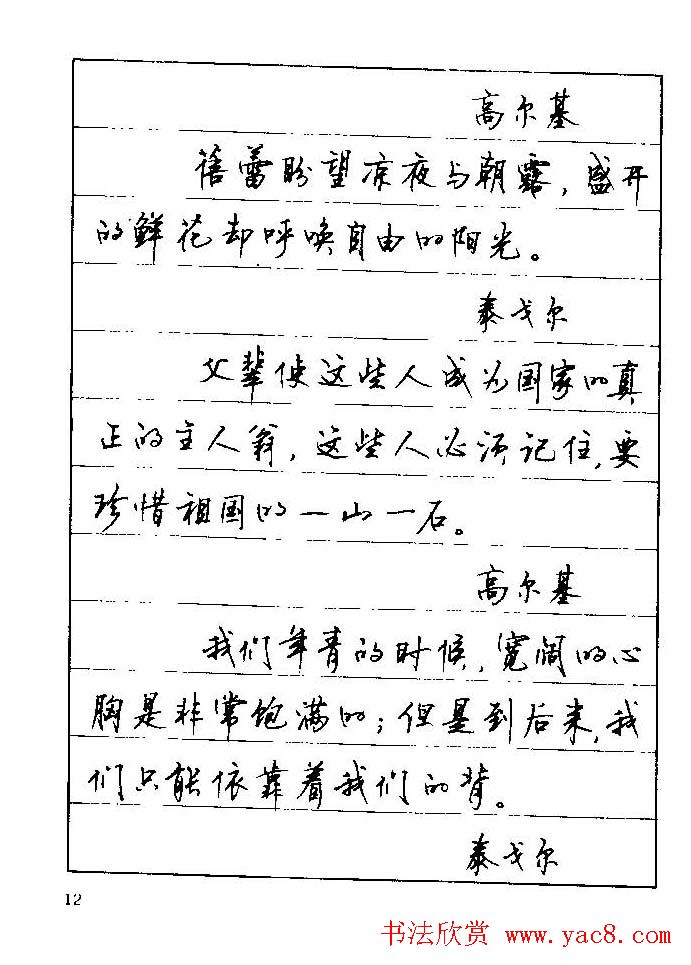 高尔基
蓓蕾盼望凉夜与朝露，盛开
的鲜花却呼唤自由的阳光。
泰戈尔
父辈使这些人成为国家的真
正的主人翁，这些人必须记住，要
珍惜祖国的一山一石。
高尔基
我们年青的时候，宽阔的心
胸是非常饱满的；但是到后来，我
们只能依靠着我们的背。
泰戈尔
12
书法欣赏 www.yac8.com